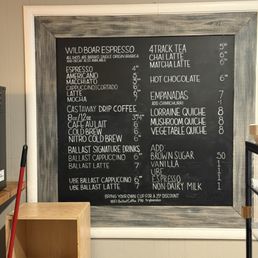 WILD BOAR ESPRESSO
ESPRESSO 4
AMERICANO
MACCHIATO
CAPPUCCINO/CORTADO
LATTE 6
MOCHA
CASTAWAY DRIP COFFEE
8oz/12oz
CAFE AU LAIT 5
COLD BREW 6
NITRO COLD BREW 6
BALLAST SIGNATURE DRINKS
BALLAST CAPPUCCINO 6
BALLAST LATTE 7
UBE BALLAST CAPPUCCINO 6
UBE BALLAST LATTE 7
4 TRACK TEA 5
CHAI LATTE 6
MATCHA LATTE 6
HOT CHOCOLATE 6
EMPANADAS 7
ADD CHIMICHURRI 1
LORRAINE QUICHE 8
MUSHROOM QUICHE 8
VEGETABLE QUICHE 8
ADD
BROWN SUGAR .50
VANILLA 1
UBE 1
ESPRESSO 1
NON DAIRY MILK 1
BRING YOUR OWN CUP FOR A DISCOUNT